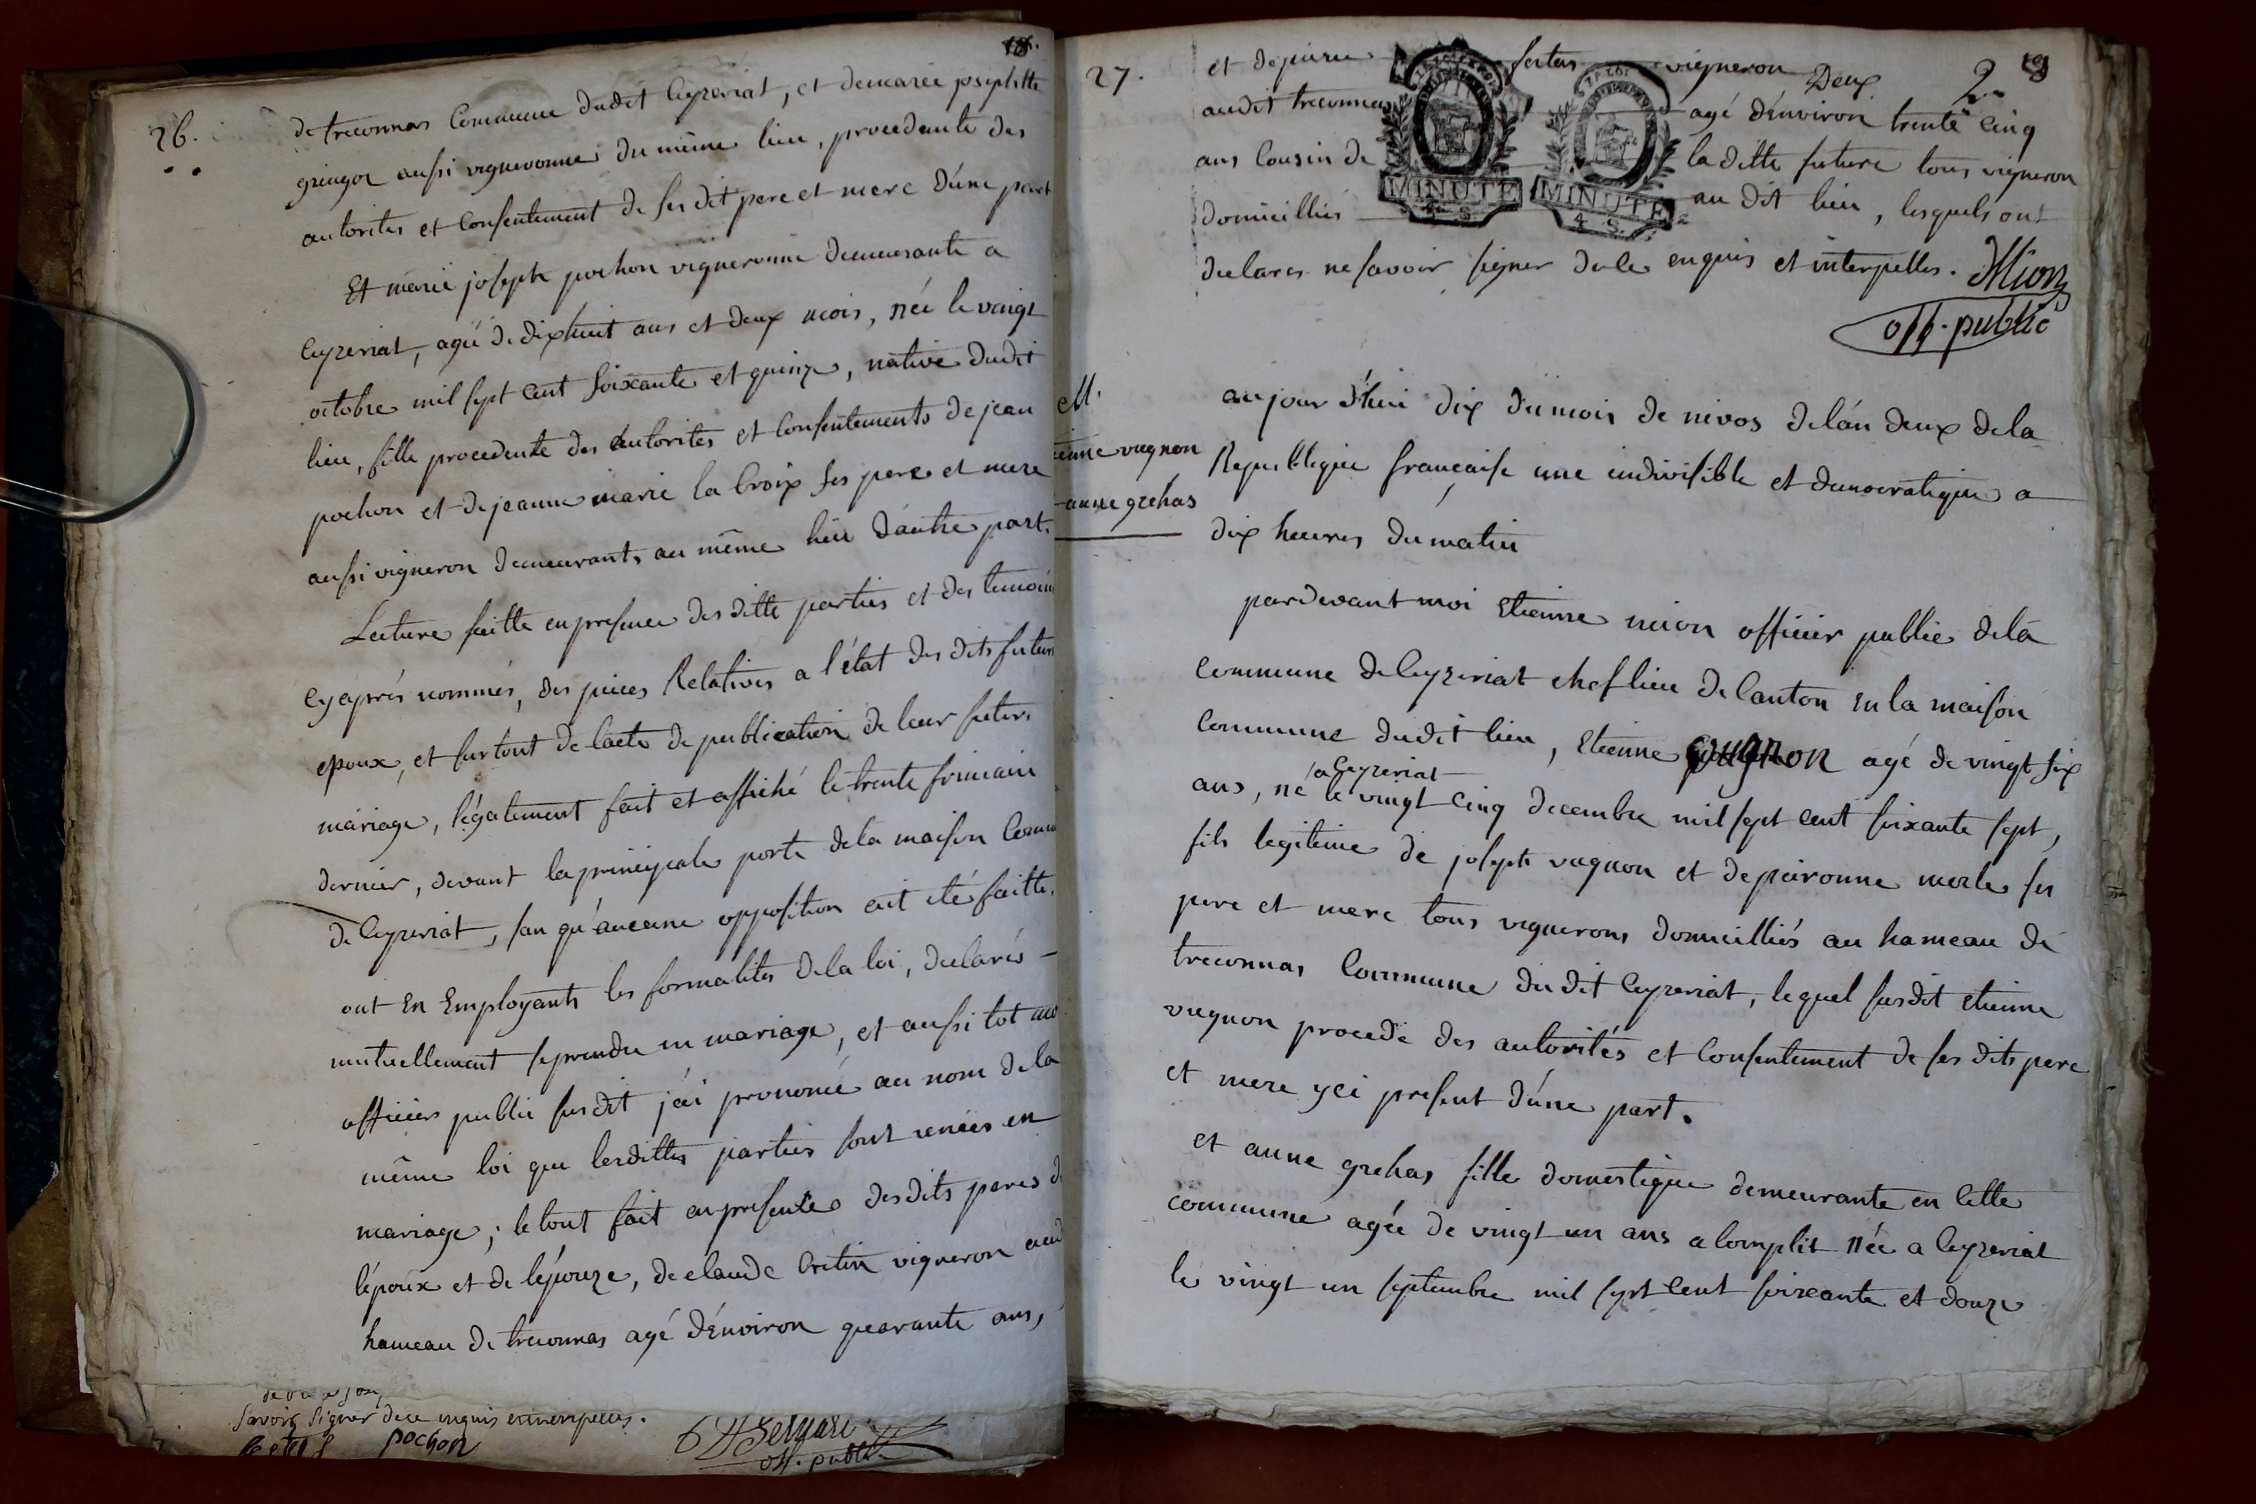 18.
26.
de treconnas Commune dudit Ceyzeriat, et demarie josephte
gringoz aussi vigneronne du même lieu, procedante des
autorites et Consentement de ses dit pere et mere d'une part
Et marie josephe pochon vigneronne demeurante a
Ceyzeriat, agée de dixhuit ans et deux mois, née le vingt
octobre mil sept cent soixante et quinze, native dudit
lieu, fille procedente des autorites et Consentements de jean
pochon et de jeanne marie la Croix ses pere et mere
aussi vigneron demeurants au même lieu d'autre part.
Lecture faitte en presence des ditte parties et des temoins
Cy aprés nommés, des pieces Relatives a l'état des dits futurs
epoux, et surtout de l'acte de publication de leur futur
mariage, légalement fait et affiché le trente frimaire
dernier, devant la principale porte de la maison Commu
de Ceyzeriat, san qu'aucune opposition ait été faitte.
ont En Employants les formalites de la loi, declarés
mutuellement se prendre en mariage, et aussi tot
officier public susdit j'ai prononcé au nom de la
même loi que lesdittes parties sont unies en
mariage; le tout fait en presence desdits peres de
l'époux et de l'épouze, de claude Cretin vigneron aud
hameau de treconnas agé d'énviron quarante ans,
savoir signer de ce enquis
pochon
off. public
27.
19
2.
et de pierre futur vigneron Deux
audit treconnas agé d'énviron trente Cinq
ans Cousin de la ditte future tous vigneron
domicilliés au dit lieu, lesquels ont
declares ne savoir signer de ce enquis et interpelles. Mion
off. public
MINUTE
4. S.
LA LOI
MINUTE
4. S.
M.
ienne vugnon
anne grehas
aujour d'hui dix du mois de nivos de l'án deux de la
Republique française une indivisible et democratique a
dix heures du matin
pardevant moi Etienne mion officier public de la
Commune de Ceyzeriat chef lieu de Canton en la maison
Commune dudit lieu, Etienne vugnon agé de vingt six
a Ceyzeriat
ans, né le vingt Cinq decembre mil sept cent soixante sept,
fils legitime de joseph vugnon et de peironne merle ses
pere et mere tous vignerons domicilliés au hameau de
treconnas Commune du dit Ceyzeriat, lequel susdit etienne
vugnon procede des autorités et Consentement de ses dits pere
et mere yci present d'une part.
et anne grehas fille domestique demeurante en Cette
commune agée de vingt un ans acomplit née a Ceyzeriat
le vingt un septembre mil sept cent soixante et douze